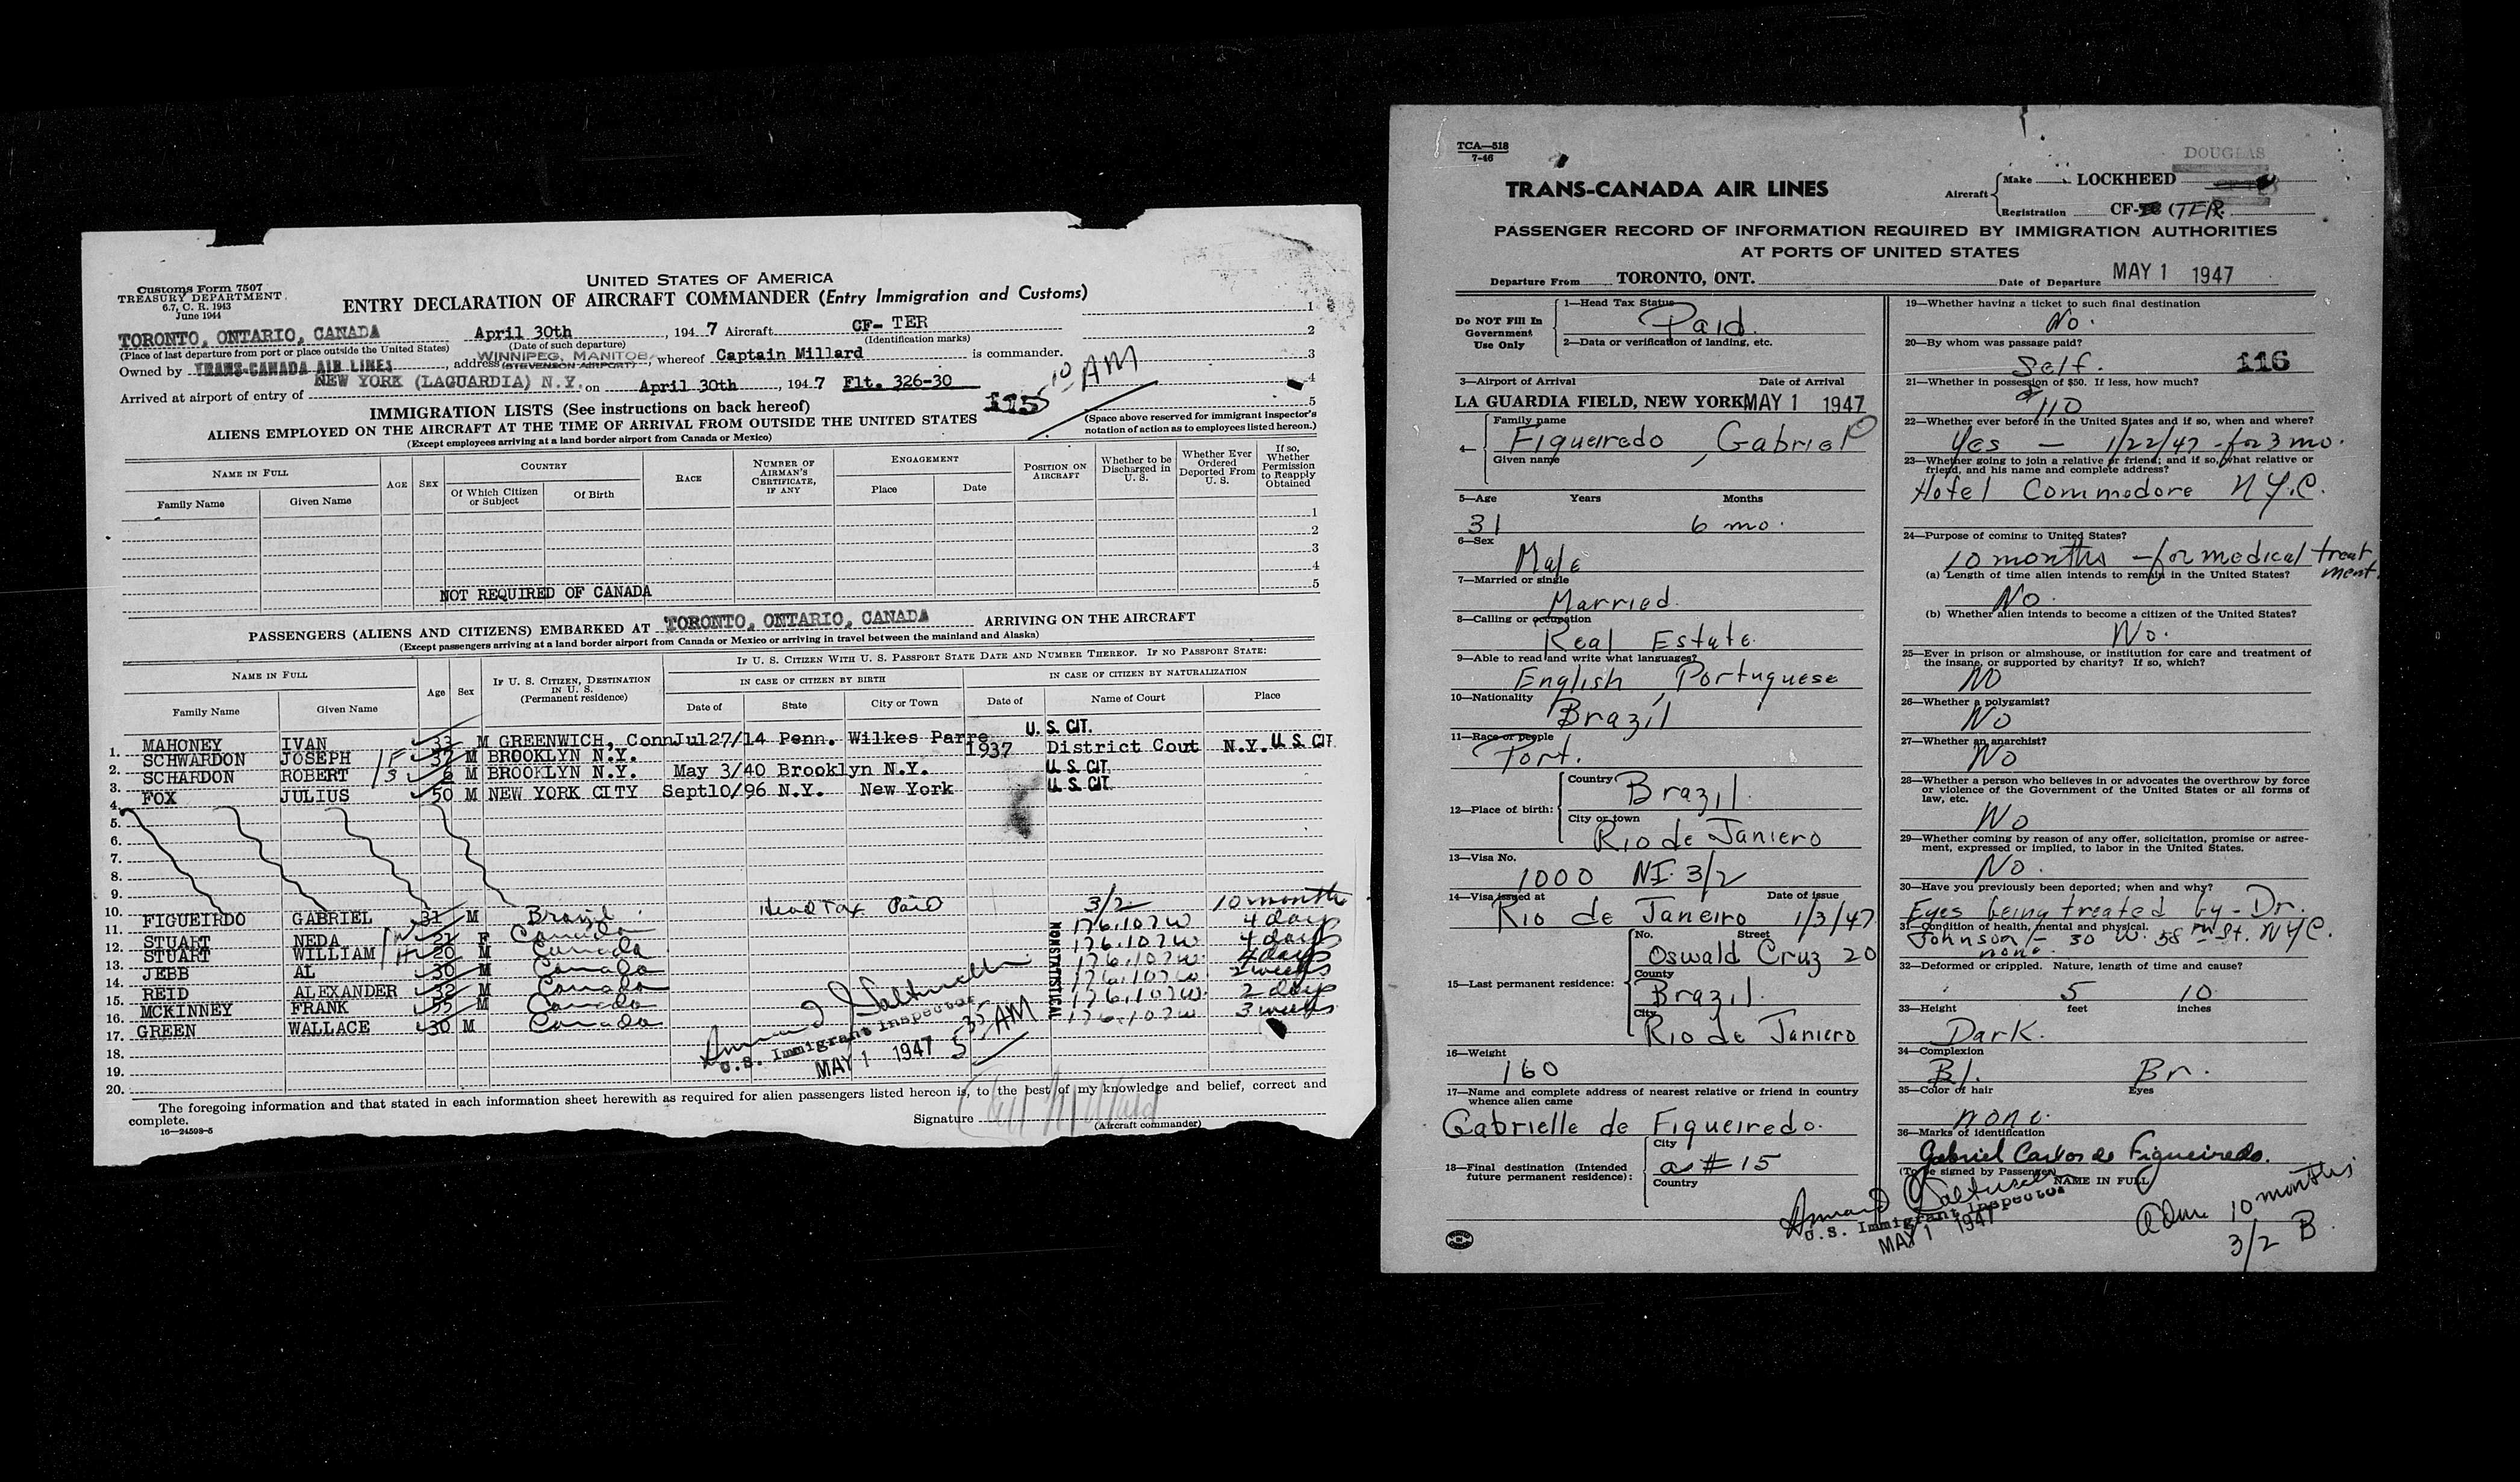 Customs Form 7507
TREASURY DEPARTMENT
6.7, C. R. 1943
June 1944
UNITED STATES OF AMERICA
ENTRY DECLARATION OF AIRCRAFT COMMANDER (Entry Immigration and Customs)
TORONTO, ONTARIO, CANADA April 30th, 1947 Aircraft CF- TER
(Place of last departure from port or place outside the United States) (Date of such departure) (Identification marks)
Owned by TRANS-CANADA AIR LINES, address WINNIPEG, MANITOBA (STEVENSON AIRPORT), whereof Captain Millard is commander.
Arrived at airport of entry of NEW YORK (LAGUARDIA) N.Y. on April 30th, 1947 Flt. 326-30
1
2
3
4
5
10 AM
115
IMMIGRATION LISTS (See instructions on back hereof)
ALIENS EMPLOYED ON THE AIRCRAFT AT THE TIME OF ARRIVAL FROM OUTSIDE THE UNITED STATES
(Except employees arriving at a land border airport from Canada or Mexico)
(Space above reserved for immigrant inspector's notation of action as to employees listed hereon.)
NAME IN FULL AGE SEX COUNTRY RACE NUMBER OF AIRMAN'S CERTIFICATE, IF ANY ENGAGEMENT POSITION ON AIRCRAFT Whether to be Discharged in U. S. Whether Ever Ordered Deported From U. S. If so, Whether Permission to Reapply Obtained
Family Name Given Name Of Which Citizen or Subject Of Birth Place Date
1
2
3
4
5
NOT REQUIRED OF CANADA
PASSENGERS (ALIENS AND CITIZENS) EMBARKED AT TORONTO, ONTARIO, CANADA ARRIVING ON THE AIRCRAFT
(Except passengers arriving at a land border airport from Canada or Mexico or arriving in travel between the mainland and Alaska)
NAME IN FULL Age Sex IF U. S. CITIZEN, DESTINATION IN U. S. (Permanent residence) IF U. S. CITIZEN WITH U. S. PASSPORT STATE DATE AND NUMBER THEREOF. IF NO PASSPORT STATE:
IN CASE OF CITIZEN BY BIRTH IN CASE OF CITIZEN BY NATURALIZATION
Family Name Given Name Date of State City or Town Date of Name of Court Place
1. MAHONEY IVAN 33 M GREENWICH, Conn Jul27/14 Penn. Wilkes Parre U. S. CIT.
2. SCHWARDON JOSEPH F 37 M BROOKLYN N.Y. 1937 District Cout N.Y. U S CIT
3. SCHARDON ROBERT S 6 M BROOKLYN N.Y. May 3/40 Brooklyn N.Y. U. S. CIT.
4. FOX JULIUS 50 M NEW YORK CITY Sept10/96 N.Y. New York U. S. CIT.
5.
6.
7.
8.
9.
10.
11. FIGUEIRDO GABRIEL 31 M Brazil Head Tax Paid 3/2 10 month
12. STUART NEDA W 21 F Canada 176.107W 4 days
13. STUART WILLIAM H 20 M Canada 176.107W 4 days
14. JEBB AL 30 M Canada 176.107W 4 days
15. REID ALEXANDER 32 M Canada 176.107W 2 weeks
16. MCKINNEY FRANK 55 M Canada 176.107W 2 days
17. GREEN WALLACE 30 M Canada 176.107W 3 weeks
NONSTATISTICAL
18.
19.
20.
U.S. Immigrant Inspector
MAY 1 1947 5 35 AM
The foregoing information and that stated in each information sheet herewith as required for alien passengers listed hereon is, to the best of my knowledge and belief, correct and complete.
Signature
(Aircraft commander)
16—24598-5
TCA—518
7-46
TRANS-CANADA AIR LINES
DOUGLAS
Aircraft Make LOCKHEED
Registration CF- (TER.
PASSENGER RECORD OF INFORMATION REQUIRED BY IMMIGRATION AUTHORITIES
AT PORTS OF UNITED STATES
Departure From TORONTO, ONT. Date of Departure MAY 1 1947
Do NOT Fill In Government Use Only
1—Head Tax Status
Paid.
2—Data or verification of landing, etc.
3—Airport of Arrival Date of Arrival
LA GUARDIA FIELD, NEW YORK MAY 1 1947
4— Family name
Figueiredo, Gabriel
Given name
5—Age Years Months
31 6 mo.
6—Sex
Male
7—Married or single
Married.
8—Calling or occupation
Real Estate.
9—Able to read and write what languages?
English, Portuguese
10—Nationality
Brazil
11—Race or people
Port.
12—Place of birth: Country
Brazil.
City or town
Rio de Janiero
13—Visa No.
1000 NI. 3/2
14—Visa issued at Date of issue
Rio de Janeiro 1/3/47
15—Last permanent residence: No. Street
Oswald Cruz 20
County
Brazil.
City
Rio de Janiero
16—Weight
160
17—Name and complete address of nearest relative or friend in country whence alien came
Gabrielle de Figueiredo.
18—Final destination (Intended future permanent residence): City
as #15
Country
19—Whether having a ticket to such final destination
No.
20—By whom was passage paid?
Self.
116
21—Whether in possession of $50. If less, how much?
110
22—Whether ever before in the United States and if so, when and where?
Yes — 1/22/47 - for 3 mo.
23—Whether going to join a relative or friend; and if so, what relative or friend, and his name and complete address?
Hotel Commodore N.Y.C.
24—Purpose of coming to United States?
10 months - for medical treatment.
(a) Length of time alien intends to remain in the United States?
No.
(b) Whether alien intends to become a citizen of the United States?
No.
25—Ever in prison or almshouse, or institution for care and treatment of the insane, or supported by charity? If so, which?
No
26—Whether a polygamist?
No
27—Whether an anarchist?
No
28—Whether a person who believes in or advocates the overthrow by force or violence of the Government of the United States or all forms of law, etc.
No
29—Whether coming by reason of any offer, solicitation, promise or agreement, expressed or implied, to labor in the United States.
No.
30—Have you previously been deported; when and why?
Eyes being treated by - Dr.
31—Condition of health, mental and physical.
Johnson - 30 W. 58th St. NYC.
none.
32—Deformed or crippled. Nature, length of time and cause?
5 10
33—Height feet inches
Dark.
34—Complexion
Bl. Br.
35—Color of hair Eyes
none.
36—Marks of identification
Gabriel Carlos de Figueiredo.
(To be signed by Passenger) NAME IN FULL
U.S. Immigrant Inspector
MAY 1 1947
adm 10 months
3/2 B